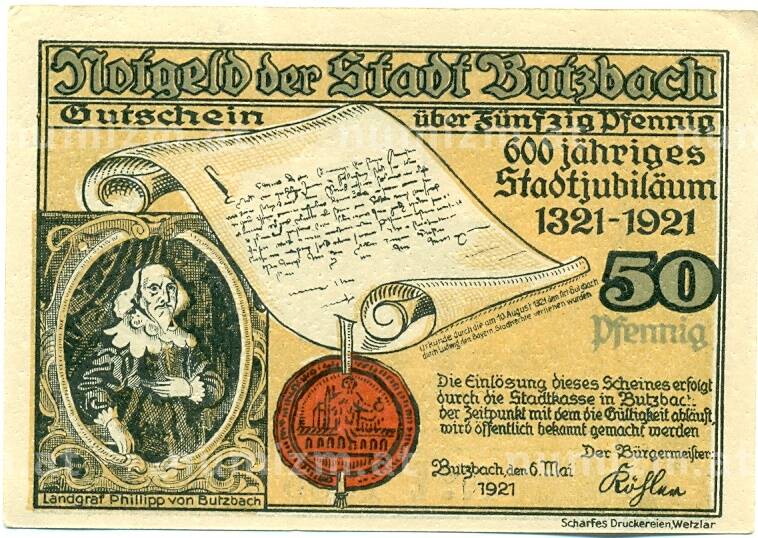 Notgeld der Stadt Butzbach
Gutschein über Fünfzig Pfennig
600 jähriges
Stadtjubiläum
1321-1921
50
Pfennig
Urkunde durch die am 10. August 1321 dem Ort Butzbach
durch Ludwig den Bayern Stadtrechte verliehen wurden
Die Einlösung dieses Scheines erfolgt
durch die Stadtkasse in Butzbach
der Zeitpunkt mit dem die Gültigkeit abläuft,
wird öffentlich bekannt gemacht werden
Der Bürgermeister:
Butzbach, den 6. Mai
1921
Köhler
Landgraf Phillipp von Butzbach
Scharfes Druckereien, Wetzlar
numizm.at